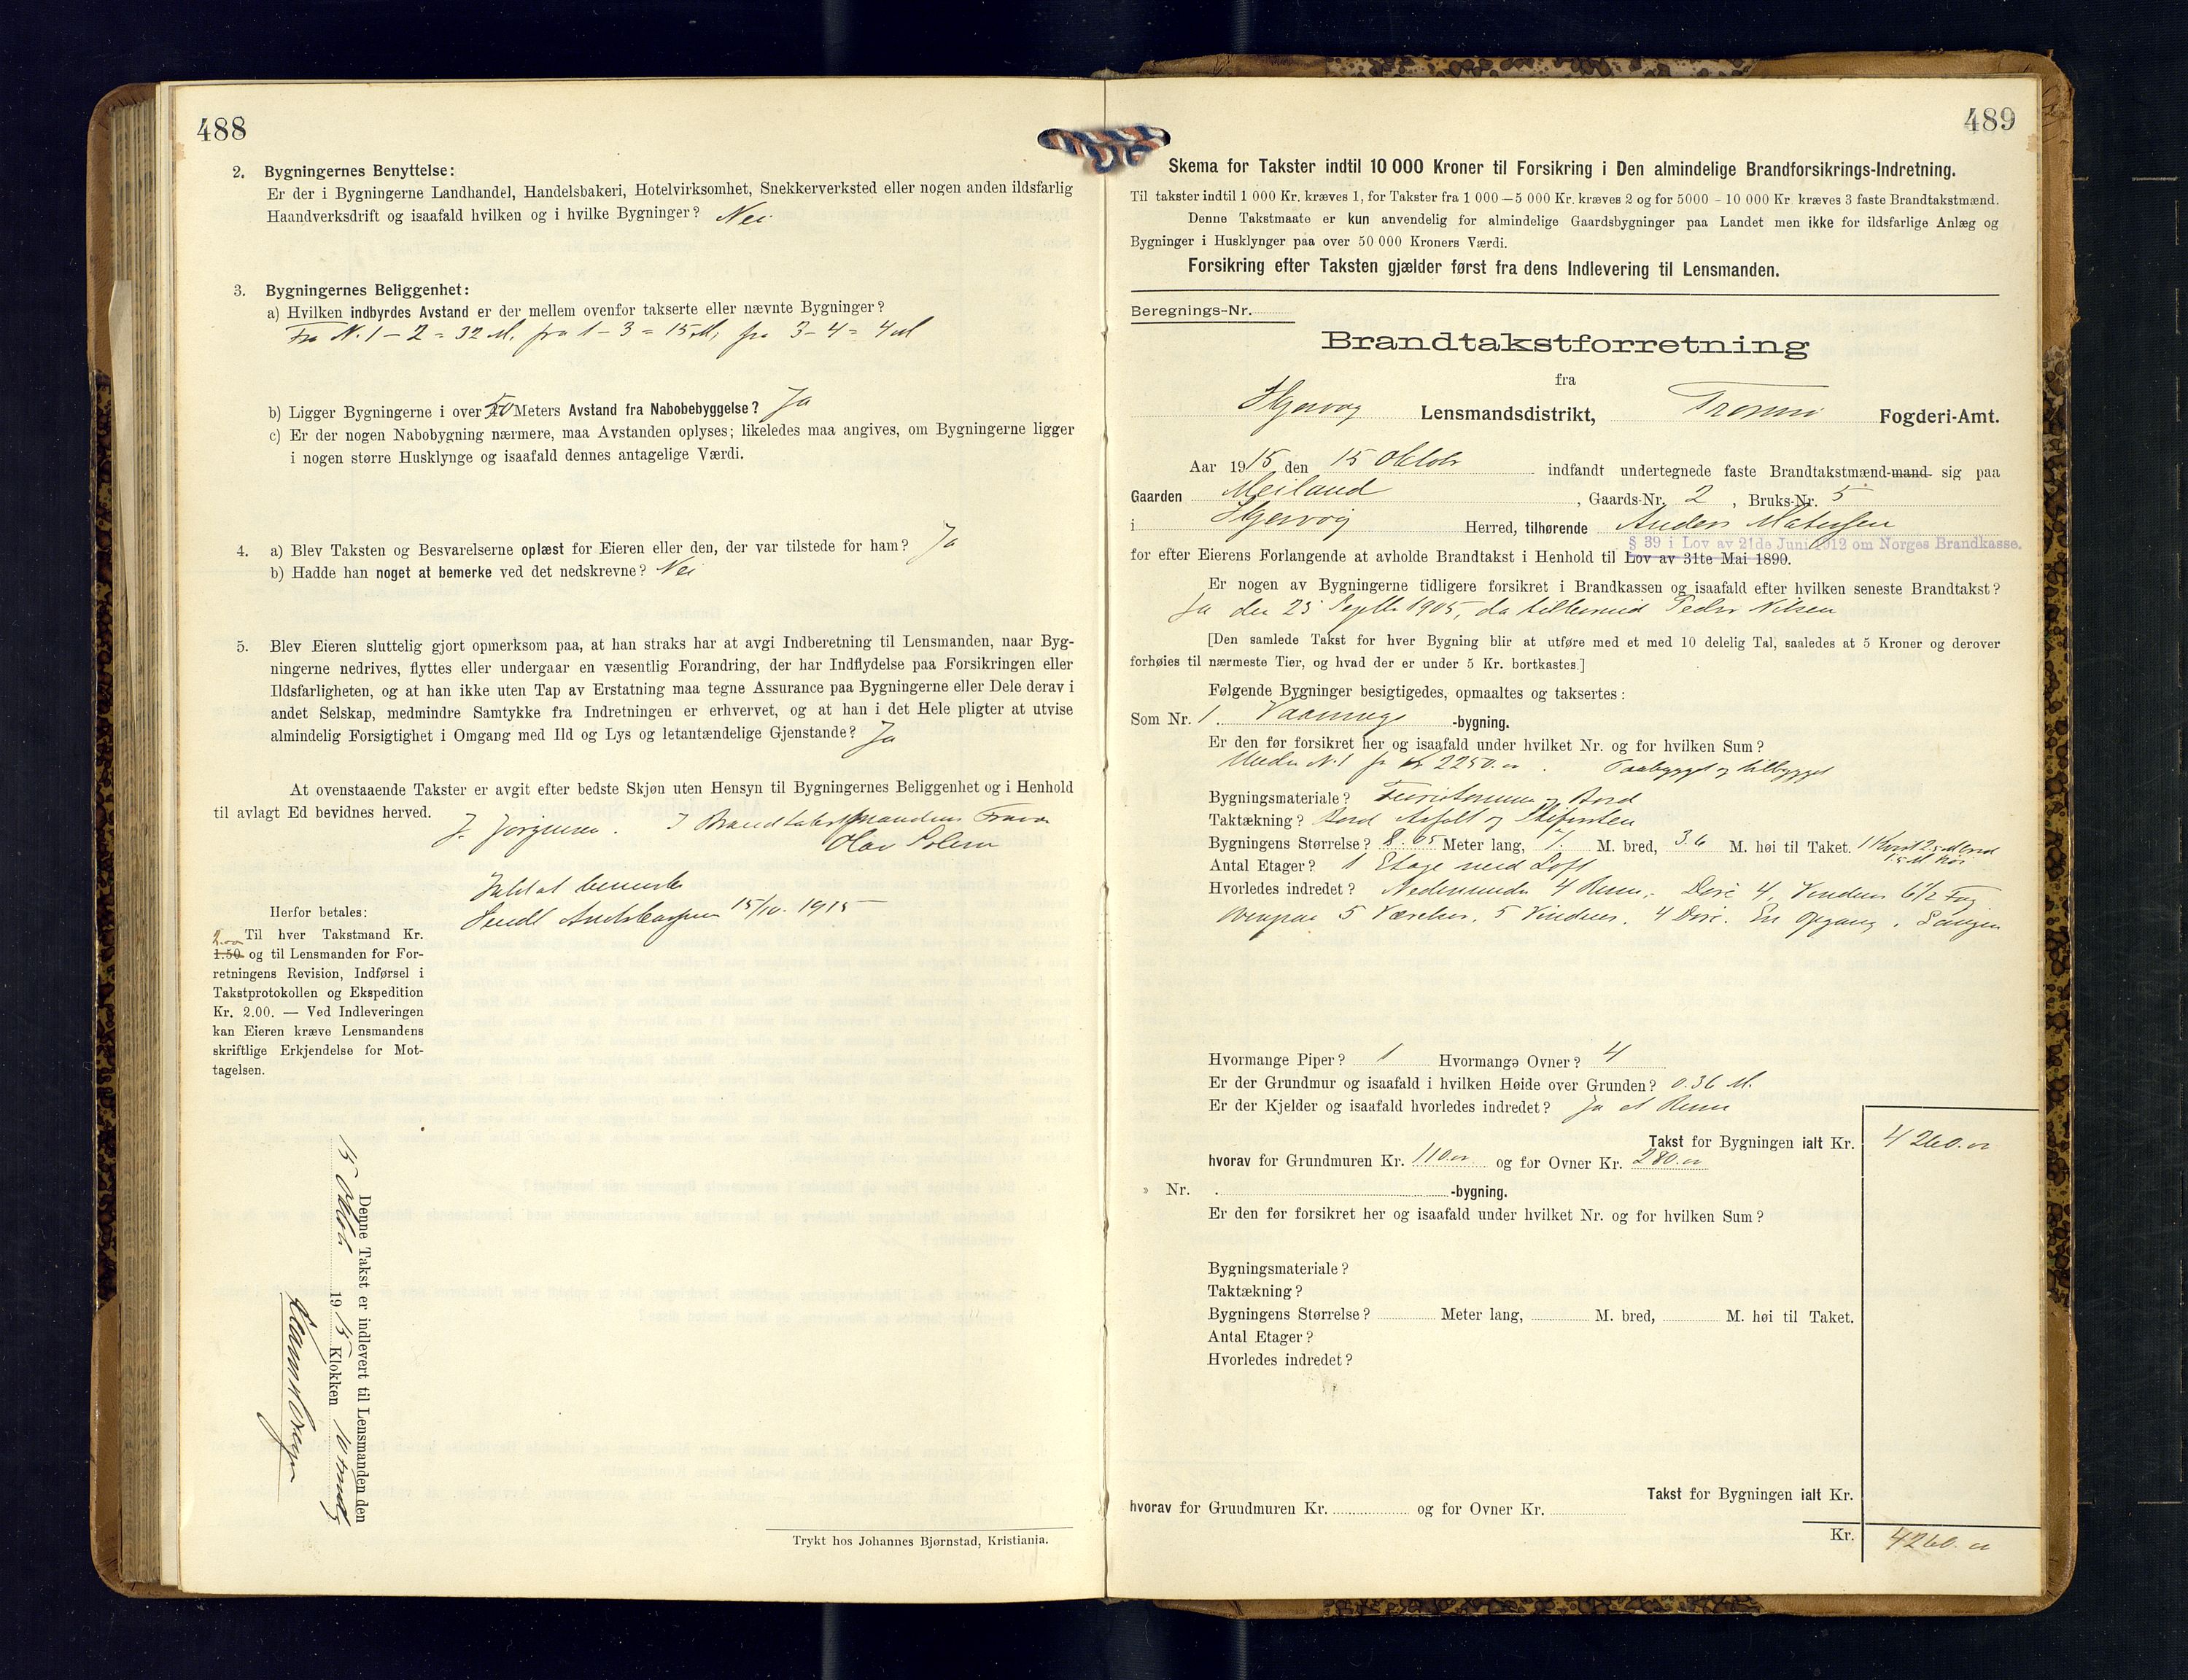 488
2. Bygningernes Benyttelse:
Er der i Bygningerne Landhandel, Handelsbakeri, Hotelvirksomhet, Snekkerverksted eller nogen anden ildsfarlig
Haandverksdrift og isaafald hvilken og i hvilke Bygninger? Nei
3. Bygningernes Beliggenhet:
a) Hvilken indbyrdes Avstand er der mellem ovenfor takserte eller nævnte Bygninger?
Fra N. 1 - 2 = 32 M, fra 1 - 3 = 15 M, fra 3 - 4 = 4 M
b) Ligger Bygningerne i over 50 Meters Avstand fra Nabobebyggelse? Ja
c) Er der nogen Nabobygning nærmere, maa Avstanden oplyses; likeledes maa angives, om Bygningerne ligger
i nogen større Husklynge og isaafald dennes antagelige Værdi.
4. a) Blev Taksten og Besvarelserne oplæst for Eieren eller den, der var tilstede for ham? Ja
b) Hadde han noget at bemerke ved det nedskrevne? Nei
5. Blev Eieren sluttelig gjort opmerksom paa, at han straks har at avgi Indberetning til Lensmanden, naar Byg-
ningerne nedrives, flyttes eller undergaar en væsentlig Forandring, der har Indflydelse paa Forsikringen eller
Ildsfarligheten, og at han ikke uten Tap av Erstatning maa tegne Assurance paa Bygningerne eller Dele derav i
andet Selskap, medmindre Samtykke fra Indretningen er erhvervet, og at han i det Hele pligter at utvise
almindelig Forsigtighet i Omgang med Ild og Lys og letantændelige Gjenstande? Ja
At ovenstaaende Takster er avgit efter bedste Skjøn uten Hensyn til Bygningernes Beliggenhet og i Henhold
til avlagt Ed bevidnes herved.
J. Jørgensen. I Brandtakstmandens Fravær
Olav Solem
Intet at bemerke
15/10. 1915
Herfor betales:
2.00
Til hver Takstmand Kr.
1.50 og til Lensmanden for For-
retningens Revision, Indførsel i
Takstprotokollen og Ekspedition
Kr. 2.00. — Ved Indleveringen
kan Eieren kræve Lensmandens
skriftlige Erkjendelse for Mot-
tagelsen.
Denne Takst er indlevert til Lensmanden den
15 Oktob 1915 Klokken 10 formd
Trykt hos Johannes Bjørnstad, Kristiania.
489
Skema for Takster indtil 10 000 Kroner til Forsikring i Den almindelige Brandforsikrings-Indretning.
Til takster indtil 1 000 Kr. kræves 1, for Takster fra 1 000—5 000 Kr. kræves 2 og for 5000 - 10 000 Kr. kræves 3 faste Brandtakstmænd.
Denne Takstmaate er kun anvendelig for almindelige Gaardsbygninger paa Landet men ikke for ildsfarlige Anlæg og
Bygninger i Husklynger paa over 50 000 Kroners Værdi.
Forsikring efter Taksten gjælder først fra dens Indlevering til Lensmanden.
Beregnings-Nr.
Brandtakstforretning
fra
Skjervøy Lensmandsdistrikt, Tromsø Fogderi-Amt.
Aar 1915 den 15 Oktob indfandt undertegnede faste Brandtakstmænd-mand sig paa
Gaarden Meiland, Gaards-Nr. 2, Bruks-Nr. 5
i Skjervøy Herred, tilhørende Anders Matissen
§ 39 i Lov av 21de Juni 1912 om Norges Brandkasse.
for efter Eierens Forlangende at avholde Brandtakst i Henhold til Lov av 31te Mai 1890.
Er nogen av Bygningerne tidligere forsikret i Brandkassen og isaafald efter hvilken seneste Brandtakst?
Ja den 25 Septbr 1905, da tilhørende Peder Nilsen
[Den samlede Takst for hver Bygning blir at utføre med et med 10 delelig Tal, saaledes at 5 Kroner og derover
forhøies til nærmeste Tier, og hvad der er under 5 Kr. bortkastes.]
Følgende Bygninger besigtigedes, opmaaltes og taksertes:
Som Nr. 1. Vaanings -bygning.
Er den før forsikret her og isaafald under hvilket Nr. og for hvilken Sum?
Under N. 1 for kr 2250.00. Paabygget og tilbygget
Bygningsmateriale? og Bord
Taktækning? Bord Asfalt og Skifersten
Bygningens Størrelse? 8.05 Meter lang, 7. M. bred, 3.6 M. høi til Taket. 1 Kvist 2.5 M bred
1.5 M høi
Antal Etager? 1 Etage med Loft
Hvorledes indredet? Nedenunder 4 Rum. Døre 4, Vinduer 6 1/2 Fag
Ovenpaa 5 Værelser, 5 Vinduer, 4 Døre. En Opgang.
Hvormange Piper? 1 Hvormange Ovner? 4
Er der Grundmur og isaafald i hvilken Høide over Grunden? 0.36 M.
Er der Kjelder og isaafald hvorledes indredet? Ja et Rum
Takst for Bygningen ialt Kr. 4260.00
hvorav for Grundmuren Kr. 110.00 og for Ovner Kr. 280.00
» Nr. . -bygning.
Er den før forsikret her og isaafald under hvilket Nr. og for hvilken Sum?
Bygningsmateriale?
Taktækning?
Bygningens Størrelse? Meter lang, M. bred, M. høi til Taket.
Antal Etager?
Hvorledes indredet?
Takst for Bygningen ialt Kr.
hvorav for Grundmuren Kr. og for Ovner Kr.
Kr. 4260.00